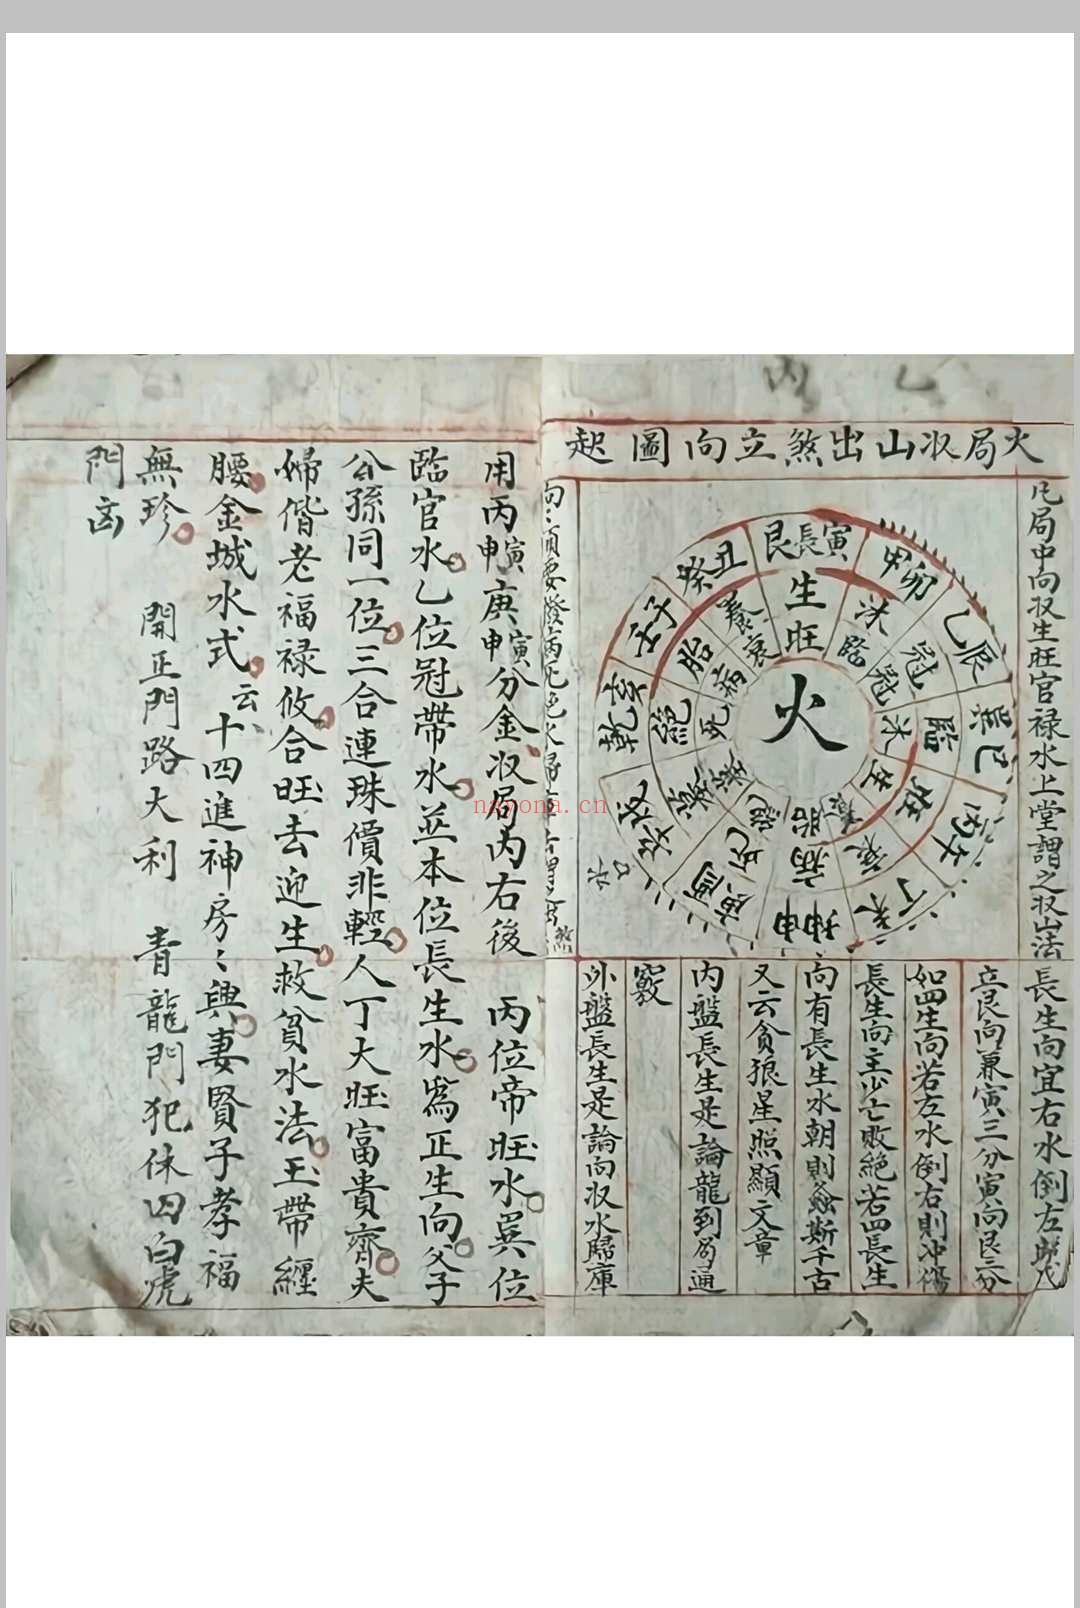 火局収山出煞立向圖起
凡局中向収生旺官禄水上堂謂之収山法
火
生旺
艮長寅
沐臨
甲卯
冠冠
乙辰
臨沐
巽巳
旺生
丙午
衰養
丁未
病胎
坤申
死絕
庚酉
墓墓
辛戌
絕死
乾亥
胎病
壬子
養衰
癸丑
長生向宜右水倒左
立艮向兼寅三分寅向艮三分
如四生向若左水倒右則冲傷
長生向主少亡敗絕若四長生
向有長生水朝則螽斯千古
又云貪狼星照顯文章
內盤長生是論龍到局通
竅
外盤長生是論向収水歸庫
用丙寅申庚寅申分金収局內右後 丙位帝旺水巽位
臨官水乙位冠帶水並本位長生水為正生向父子
公孫同一位三合連珠價非輕人丁大旺富貴齊夫
婦偕老福禄攸合旺去迎生救貧水法玉帶纏
腰金城水式云十四進神房〻興妻賢子孝福
無珍 開正門路大利 青龍門犯休囚白虎
門凶
nayona.cn